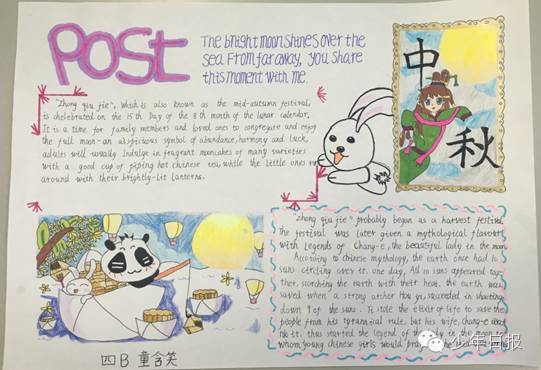 POST
The bright moon shines over the
sea. From far away, you share
this moment with me.
中
秋
"Zhong qiu jie", Which is also known as the mid-autumn festival,
is chelebrated on the 15th Day of the 8th month of the lunar calendar.
It is a time for family members and loved ones to congregate and enjoy
the full moon-an auspicious symbol of abundance, harmony and luck,
adules will usually Indulge in fragrant mooncakes of many varieties
with a good cup of piping hot chinese tea, while the little ones
around with their brightly-lit lanterns.
"zhong qiu jie" probably began as a harvest festival
the festival was later given a mythological flavour
with legends of Chang-e, the beautiful lady in the moon.
According to chinese mythology, the earth once had 10
suns circling over it. one day, All 10 suns appeared tog-
ether, scorching the earth with their heat. the earth was
saved when a strong archer Hou yi, succeeded in shooting
down 9 of the suns. Yi stole the elixir of life to save the
people from his tyrannical rule. but his wife, chang-e
it. thus started the legend of the lady in the moon to
whom young chinese girls would pray
四B 童含笑
少年日报